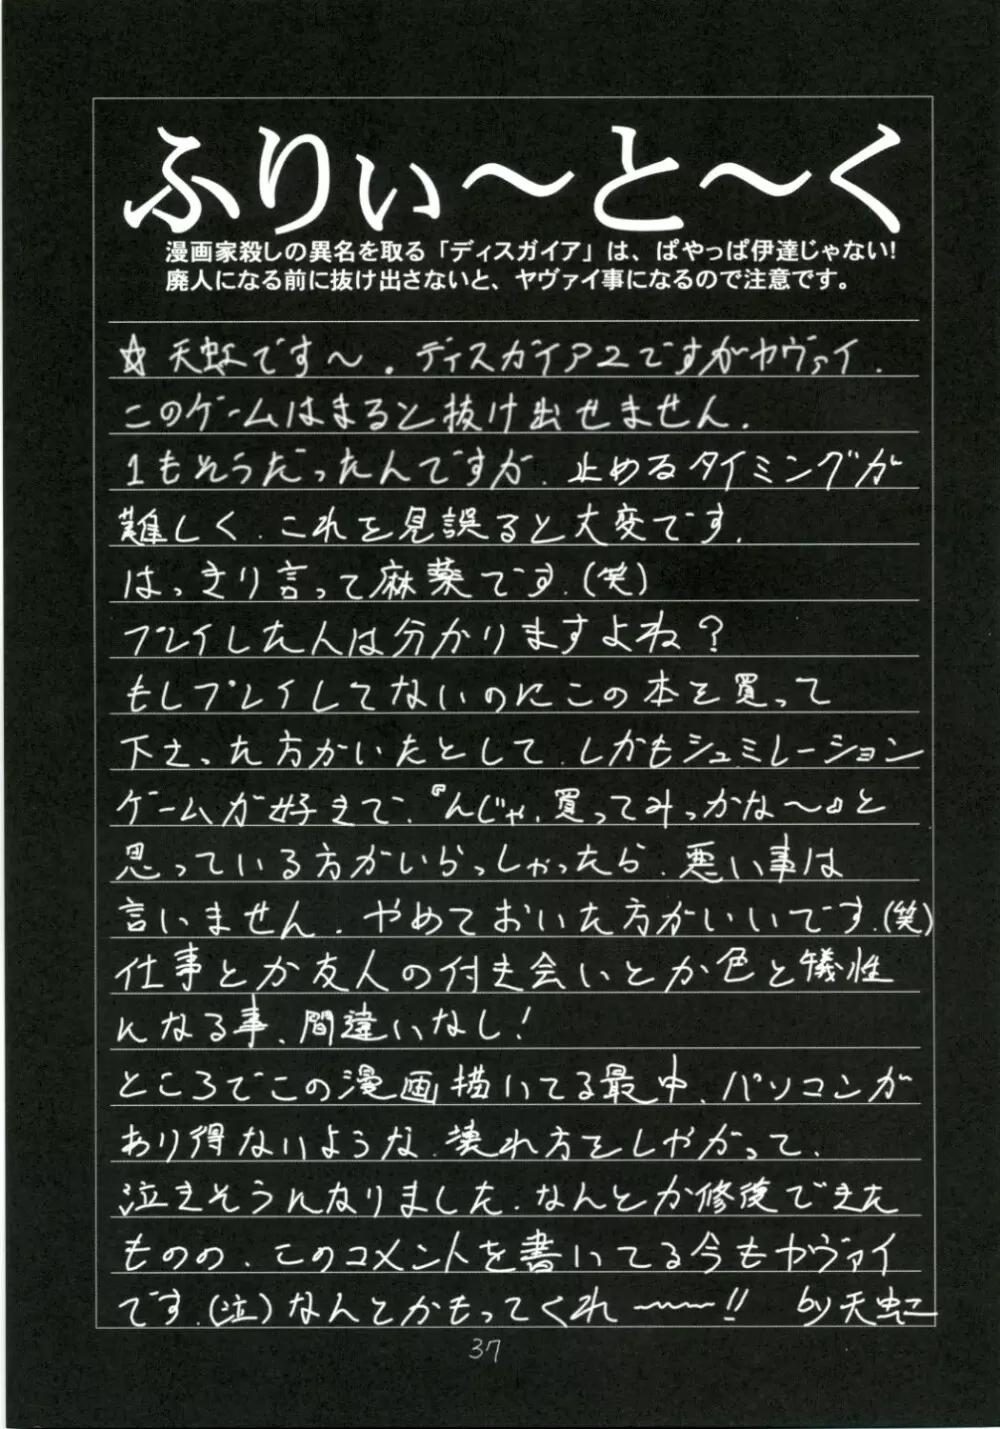 ふりぃ〜と〜く
漫画家殺しの異名を取る「ディスガイア」は、ぱやっぱ伊達じゃない!
廃人になる前に抜け出さないと、ヤヴァイ事になるので注意です。
☆天虹です〜。ディスガイア2ですがヤヴァイ.
このゲームはまると抜け出せません.
1もそうだったんですが、止めるタイミングが
難しく、これを見誤ると大変です.
はっきり言って麻薬です.(笑)
プレイした人は分かりますよね?
もしプレイしてないのにこの本を買って
下さった方がいたとして、しかもシュミレーション
ゲームが好きで、『んじゃ、買ってみっかな〜』と
思っている方がいらっしゃったら、悪い事は
言いません、やめておいた方がいいです.(笑)
仕事とか友人の付き会いとか色と犠性
になる事、間違いなし!
ところでこの漫画描いてる最中、パソコンが
あり得ないような、壊れ方をしやがって、
泣きそうになりました、なんとか修復できた
ものの、このコメントを書いてる今もヤヴァイ
です.(泣)なんとかもってくれ〜〜〜!! by天虹
37